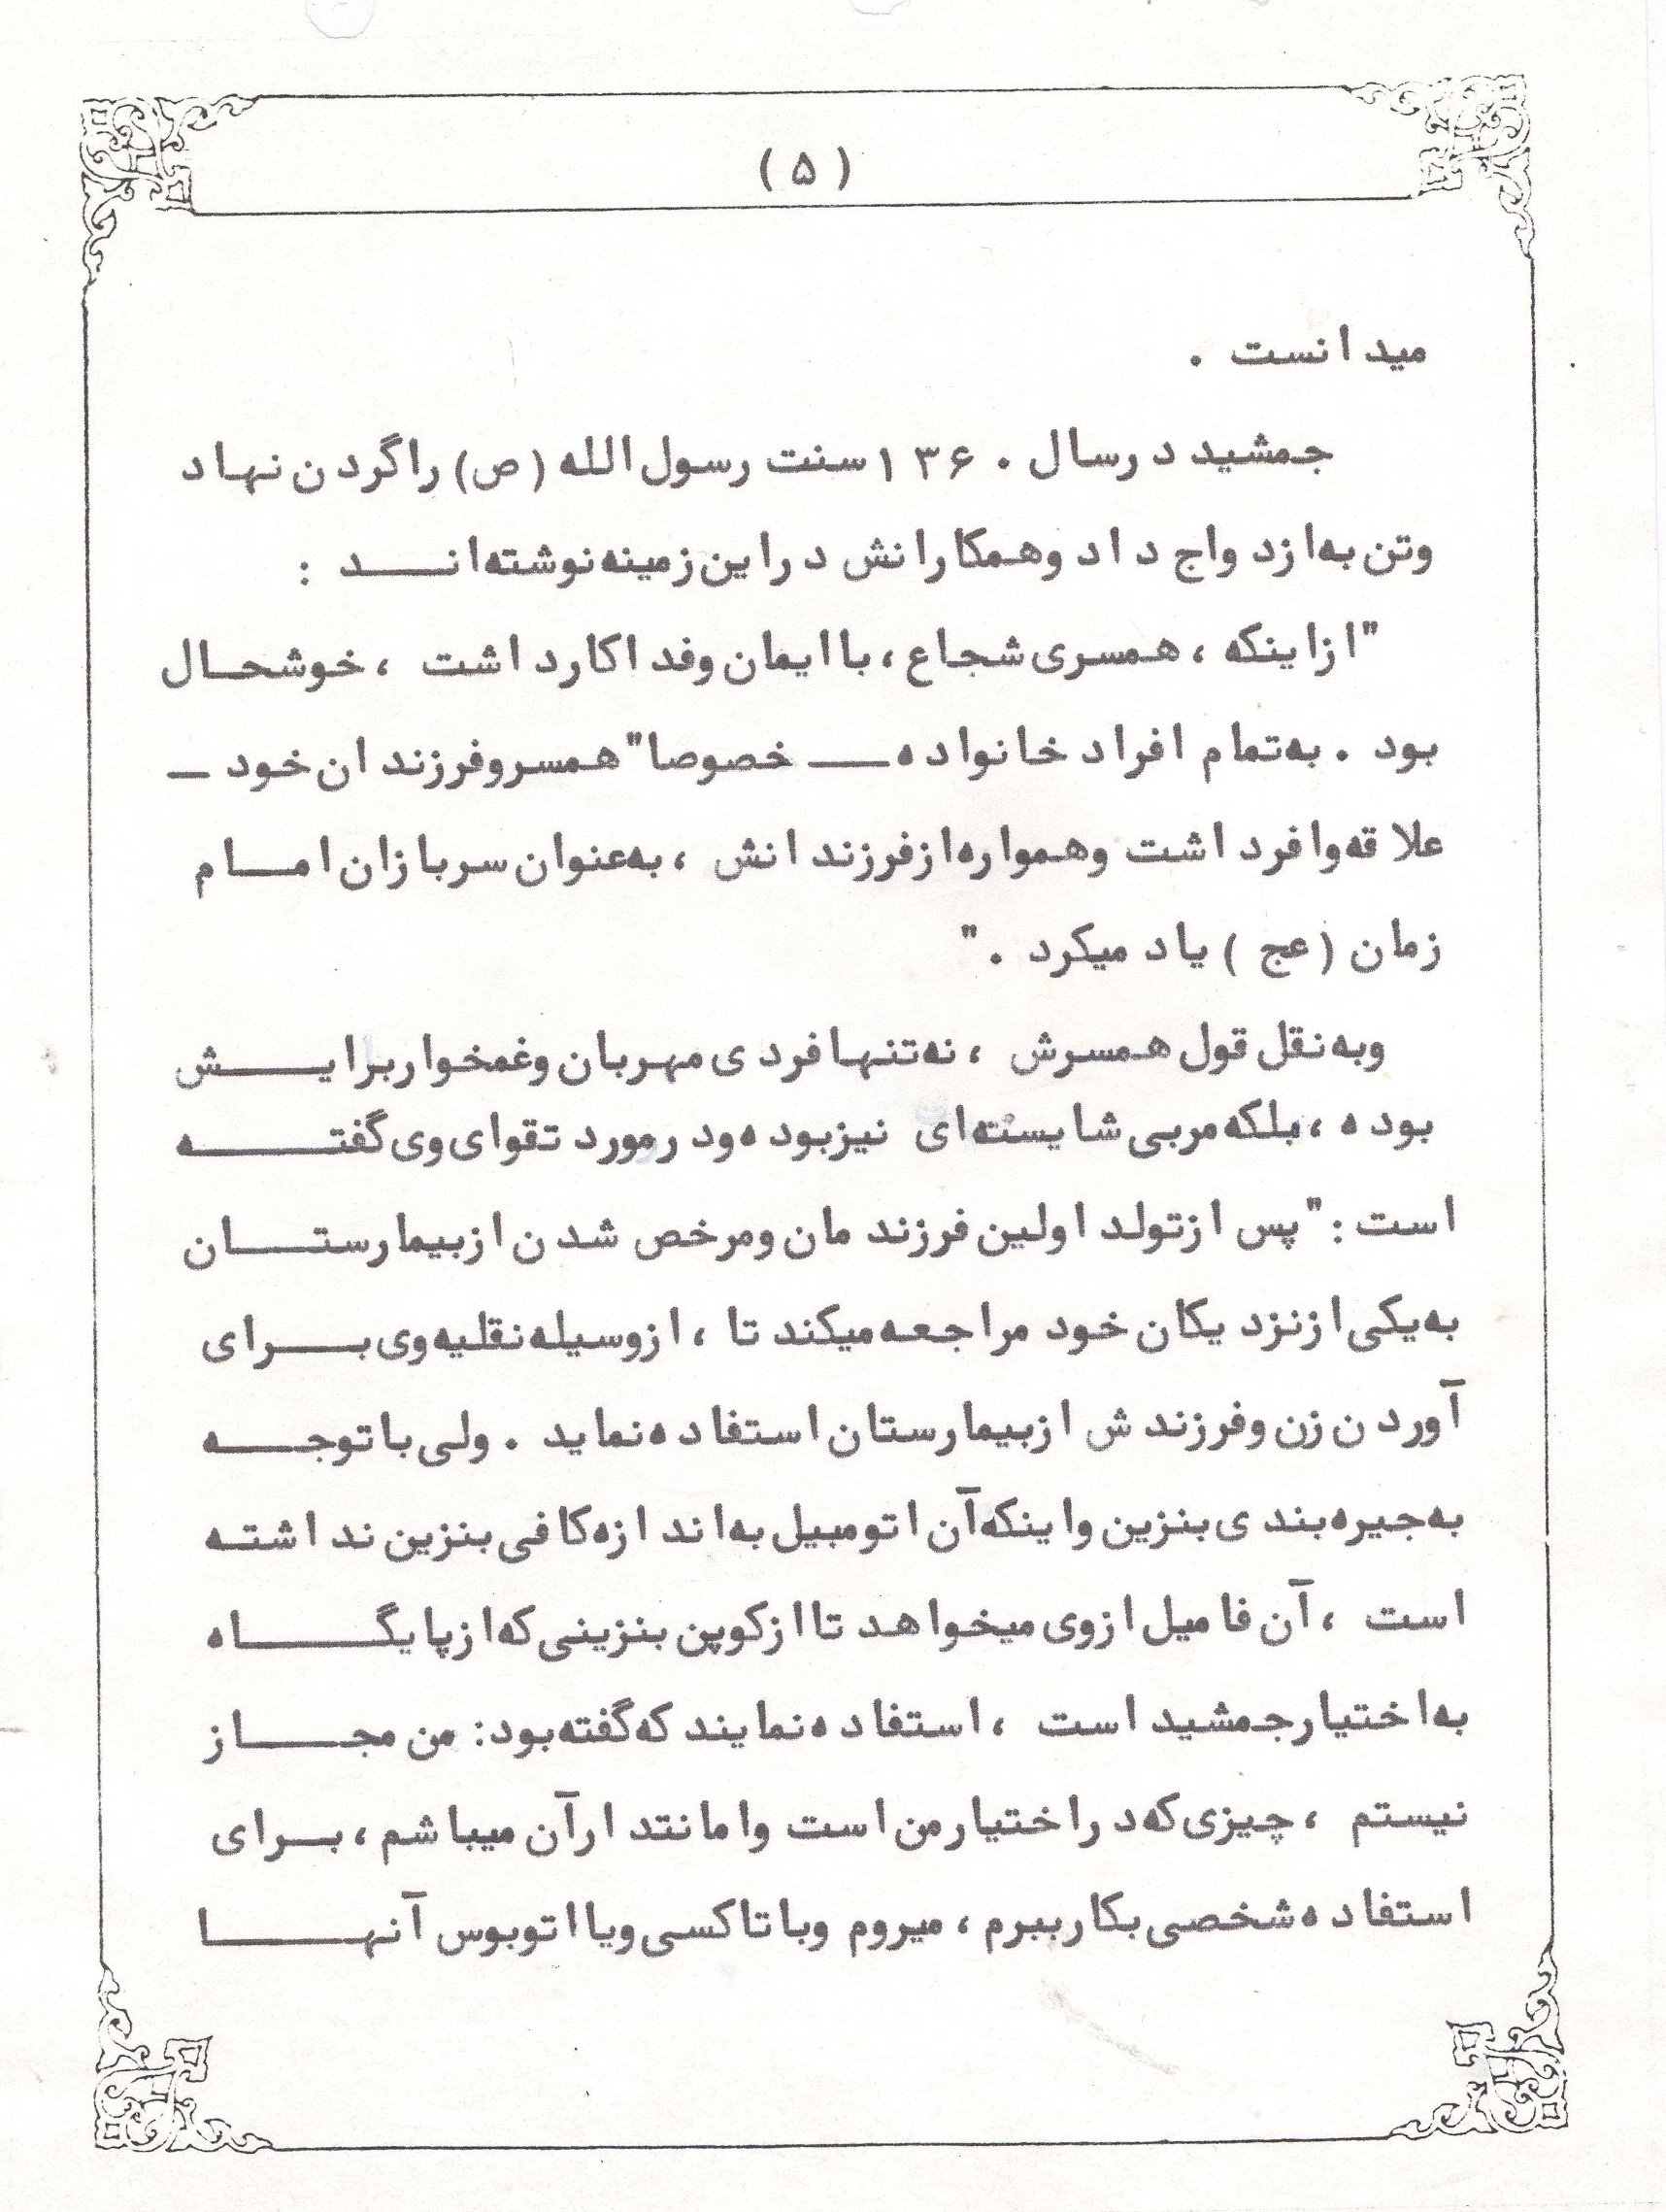 (۵)
میدانست .
جمشید درسال ۱۳۶۰ سنت رسول الله (ص) راگردن نهاد
وتن به ازدواج داد وهمکارانش دراین زمینه نوشته اند :
"ازاینکه ، همسری شجاع ، باایمان وفداکارداشت ، خوشحال
بود . به تمام افراد خانواده ـ خصوصا" همسروفرزندان خود ـ
علاقه وافرداشت وهمواره ازفرزندانش ، به عنوان سربازان امام
زمان (عج) یاد میکرد ."
وبه نقل قول همسرش ، نه تنها فردی مهربان وغمخواربرایش
بوده ، بلکه مربی شایسته ای نیزبوده ودرمورد تقوای وی گفته
است : "پس ازتولد اولین فرزندمان ومرخص شدن ازبیمارستان
به یکی ازنزدیکان خود مراجعه میکند تا ، ازوسیله نقلیه وی برای
آوردن زن وفرزندش ازبیمارستان استفاده نماید . ولی باتوجه
به جیره بندی بنزین واینکه آن اتومبیل به اندازه کافی بنزین نداشته
است ، آن فامیل ازوی میخواهد تاازکوپن بنزینی که ازپایگاه
به اختیارجمشید است ، استفاده نمایند که گفته بود: من مجاز
نیستم ، چیزی که دراختیارمن است وامانتدارآن میباشم ، برای
استفاده شخصی بکارببرم ، میروم وباتاکسی ویااتوبوس آنها